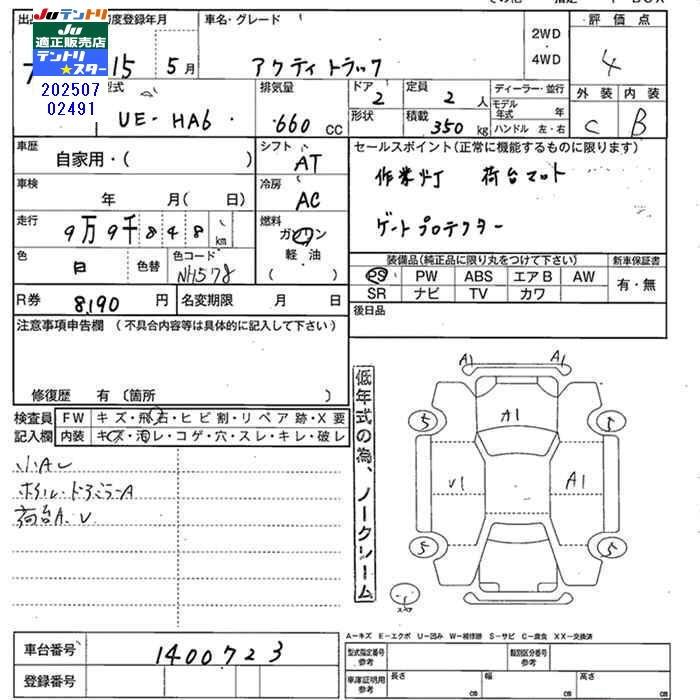 Juテントリ
適正販売店
テントリ
★スター
202507
02491
初度登録年月
15 5月
車名・グレード
アクティトラック
2WD
4WD
評価点
4
外装 内装
C B
型式
UE-HA6
排気量
660 cc
ドア
2
形状
定員
2人
積載
350kg
ディーラー・並行
モデル年式 年
ハンドル 左・右
車歴
自家用・( )
シフト
AT
車検
年 月( 日)
冷房
AC
走行
9万9千848km
燃料
ガソリン
軽油
( )
色
白
色替
色コード
NH578
R券
8,190円
名変期限 月 日
セールスポイント(正常に機能するものに限ります)
作業灯 荷台マット
ゲートプロテクター
装備品(純正品に限り丸をつけて下さい)
新車保証書
PS PW ABS エアB AW
SR ナビ TV カワ
有・無
後日品
注意事項申告欄(不具合内容等は具体的に記入して下さい)
修復歴 有〔箇所 〕
検査員
記入欄
FW キズ・飛石・ヒビ割・リペア跡・X要
内装 キズ・汚レ・コゲ・穴・スレ・キレ・破レ
小AU
荷台A.U
低年式の為、ノークレーム
A1 A1
A1
5 5
U1 A1
5 5
スペア
A-キズ E-エクボ U-凹み W-補修跡 S-サビ C-腐食 XX-交換済
車台番号
1400723
登録番号
型式指定番号
参考
類別区分番号
参考
車庫証明用
参考
長さ cm
幅 cm
高さ cm